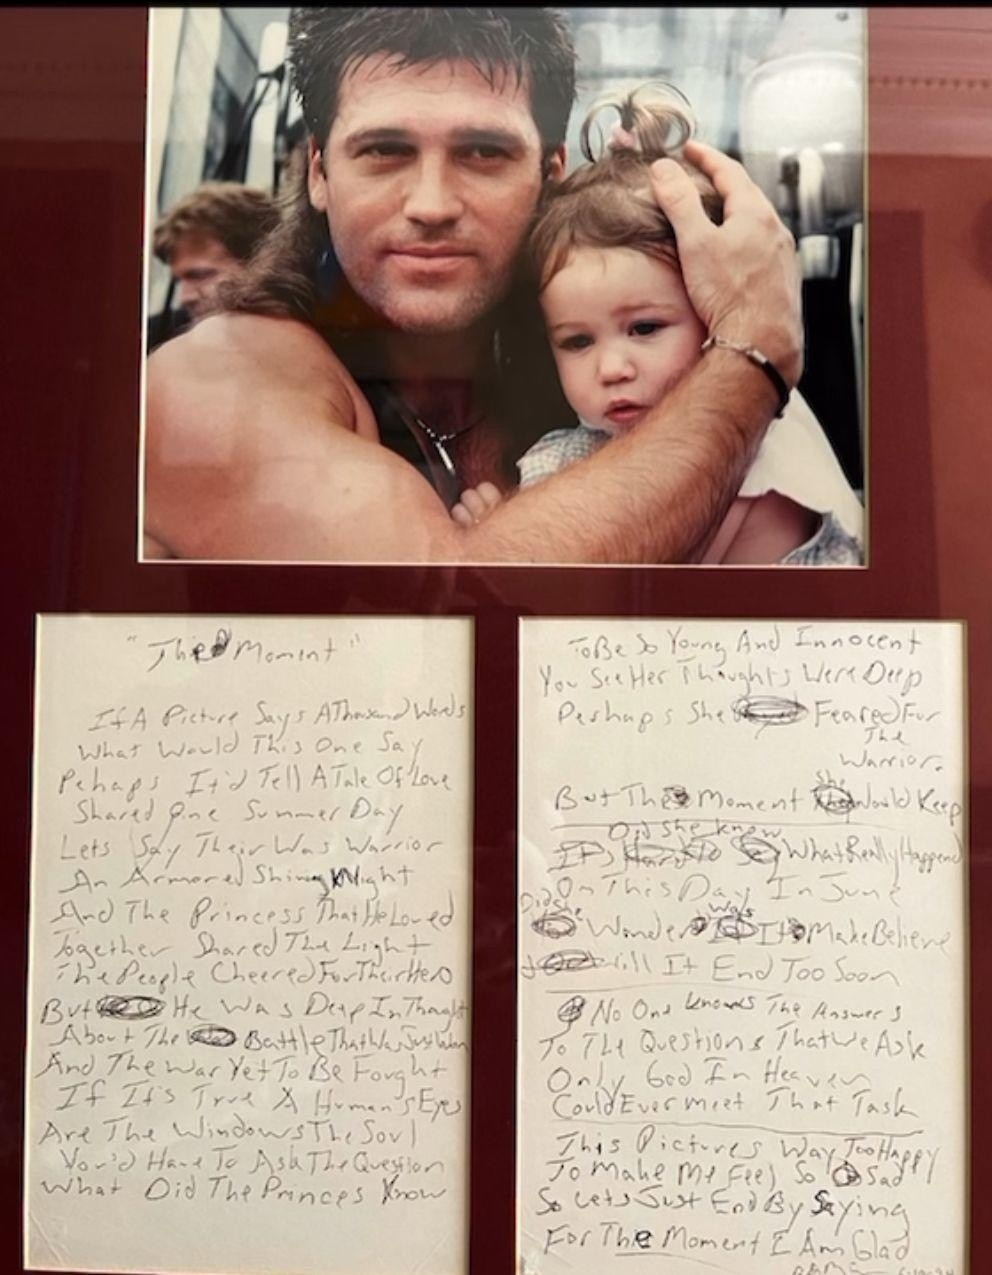 "The Moment"
If A Picture Says A Thousand Words
What Would This One Say
Pehaps It'd Tell A Tale Of Love
Shared One Summer Day
Lets Say Their Was Warrior
An Armored Shining Knight
And The Princess That He Loved
Together Shared The Light
The People Cheered For Their Hero
But He Was Deep In Thought
About The Battle That Was Just Won
And The War Yet To Be Fought
If It's True A Human's Eyes
Are The Windows The Soul
You'd Have To Ask The Question
What Did The Princes Know
To Be So Young And Innocent
You See Her Thoughts Were Deep
Perhaps She Feared For
The
Warrior.
But The Moment She Would Keep
Did She Know
What Really Happend
On This Day In June
Did She Wonder Was It Make Believe
Will It End Too Soon
No One Knows The Answers
To The Questions That We Ask
Only God In Heaven
Could Ever Meet That Task
This Pictures Way Too Happy
To Make Me Feel So Sad
So Lets Just End By Saying
For The Moment I Am Glad